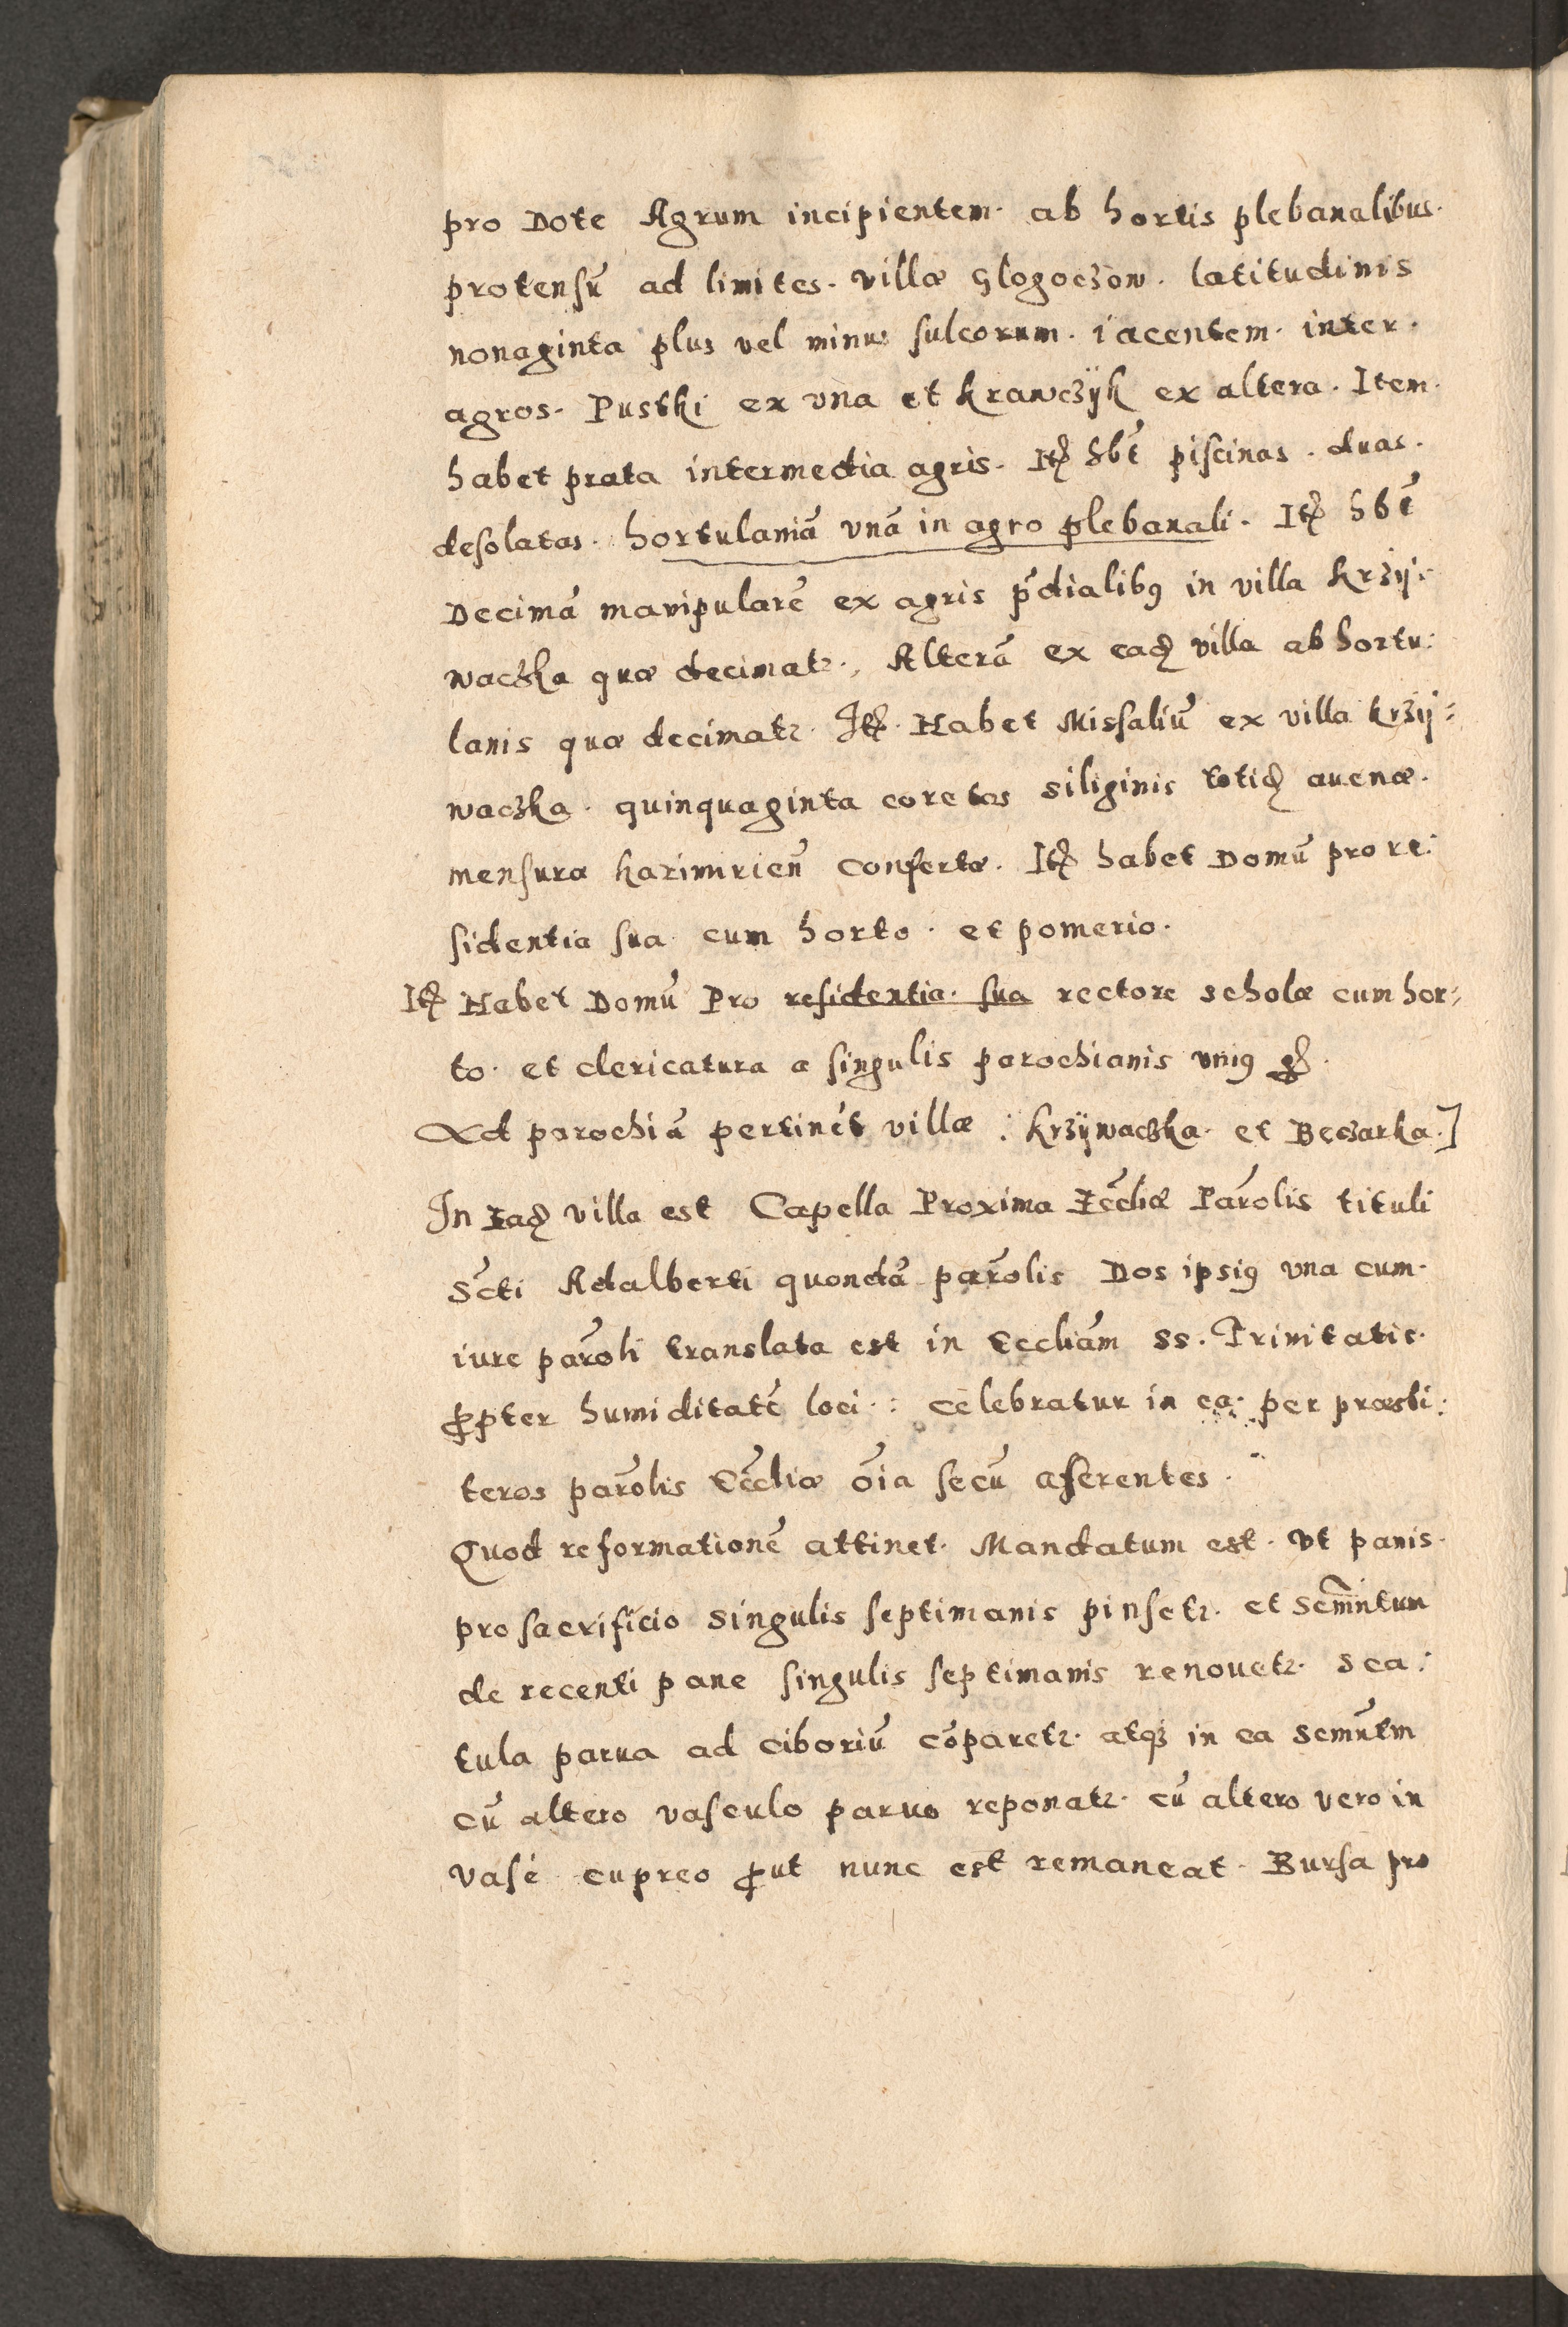 pro Dote Agrum incipientem. ab hortis plebanalibus.
protensũ ad limites. villæ Glogoczow. latitudinis
nonaginta plus vel minus sulcorum. iacentem. inter.
agros. Pustki ex vna et Krawczÿk ex altera. Item.
habet prata intermedia agris. Itẽ hbt̃ piscinas. duas.
desolatas. hortulaniã vnã in agro plebanali. Itẽ hbt̃
Decimã manipularẽ ex agris p̃dialibꝫ in villa Krzÿ:
waczka quæ decimatr., Alterã ex eadẽ villa ab hortu:
lanis quæ decimatr. Itẽ. Habet Missaliũ ex villa krzÿ:
waczka. quinquaginta coretos siliginis totidẽ auenæ.
mensuræ kazimirieñ confertæ. Itẽ habet Domũ pro re:
sidentia sua cum horto. et pomerio.
Itẽ Habet Domũ Pro residentia. sua rectore scholæ cum hor:
to. et clericatura a singulis parochianis vniꝰ
Ad parochiã pertinẽt villæ : krzÿwaczka. et Beczarka.]
In Eadẽ villa est Capella Proxima Eccliæ̃ Parõlis tituli
Sc̃ti Adalberti quondã parõlis Dos ipsiꝰ vna cum.
iure parõli translata est in Eccliam̃ SS. Trinitatis.
ꝓpter humiditatẽ loci. : celebratur in ea. per præsbi:
teros parõlis Ecc̃liæ oĩa secũ aferentes.
Quod reformationẽ attinet. Mandatum est. vt panis.
pro sacrificio singulis septimanis pinsetr. et Scm̃ntum
de recenti pane singulis septimanis renouetr. sca:
tula parua ad ciboriũ cõparetr. atqꝫ in ea scmñtm
cũ altero vasculo paruo reponatr. cũ altero vero in
vase cupreo ꝓut nunc est remaneat. Bursa pro